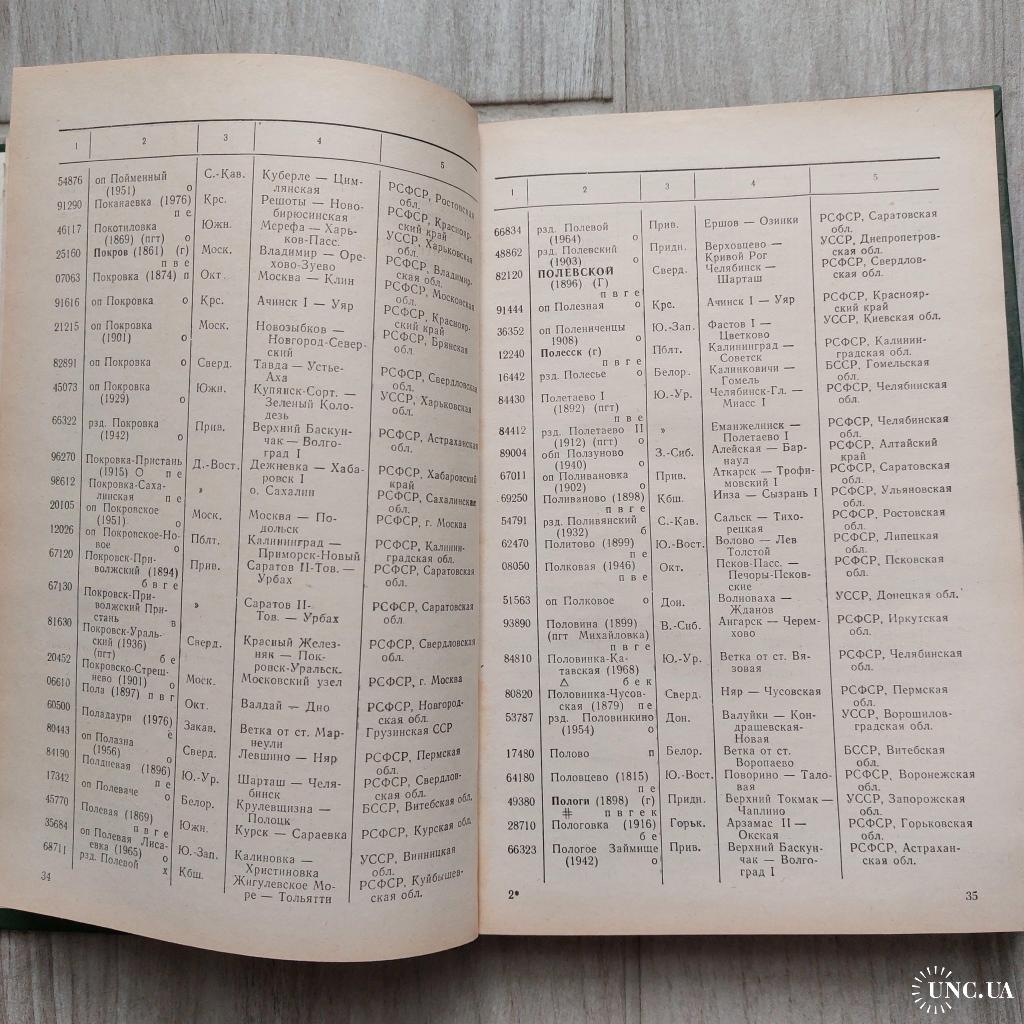 1 2 3 4 5
54876 оп Пойменный С.-Кав. Куберле — Цим- РСФСР, Ростовская
(1951) о лянская обл.
91290 Поканаевка (1976) Крс. Решоты — Ново- РСФСР, Краснояр-
п е бирюсинская ский край
46117 Покотиловка Южн. Мерефа — Харь- УССР, Харьковская
(1869) (пгт) о ков-Пасс. обл.
25160 Покров (1861) (г) Моск. Владимир — Оре- РСФСР, Владимир-
п в е хово-Зуево ская обл.
07063 Покровка (1874) п Окт. Москва — Клин РСФСР, Московская
обл.
91616 оп Покровка о Крс. Ачинск I — Уяр РСФСР, Краснояр-
ский край
21215 оп Покровка Моск. Новозыбков — РСФСР, Брянская
(1901) о Новгород-Север- обл.
ский
82891 оп Покровка о Сверд. Тавда — Устье- РСФСР, Свердловская
Аха обл.
45073 оп Покровка Южн. Купянск-Сорт. — УССР, Харьковская
(1929) о Зеленый Коло- обл.
дезь
66322 рзд. Покровка Прив. Верхний Баскун- РСФСР, Астраханская
(1942) о чак — Волго- обл.
град I
96270 Покровка-Пристань Д.-Вост. Дежневка — Хаба- РСФСР, Хабаровский
(1915) О п е ровск I край
98612 Покровка-Саха- » о. Сахалин РСФСР, Сахалинская
линская п е обл.
20105 оп Покровское Моск. Москва — По- РСФСР, г. Москва
(1951) о дольск
12026 оп Покровское-Но- Пблт. Калининград — РСФСР, Калинин-
вое о Приморск-Новый градская обл.
67120 Покровск-При- Прив. Саратов II-Тов. — РСФСР, Саратовская
волжский (1894) Урбах обл.
б в г е
67130 Покровск-При- » Саратов II- РСФСР, Саратовская
волжский При- Тов. — Урбах обл.
стань в
81630 Покровск-Ураль- Сверд. Красный Желез- РСФСР, Свердловская
ский (1936) няк — Пок- обл.
(пгт) б е ровск-Уральск.
20452 Покровско-Стреш- Моск. Московский узел РСФСР, г. Москва
нево (1901) о
06610 Пола (1897) п в г Окт. Валдай — Дно РСФСР, Новгород-
ская обл.
60500 Поладаури (1976) Закав. Ветка от ст. Мар- Грузинская ССР
е неули
80443 оп Полазна Сверд. Левшино — Няр РСФСР, Пермская
(1956) о обл.
84190 Полдневая (1896) Ю.-Ур. Шарташ — Челя- РСФСР, Свердлов-
п е бинск ская обл.
17342 оп Полеваче о Белор. Крулевщизна — БССР, Витебская обл.
Полоцк
45770 Полевая (1869) Южн. Курск — Сараевка РСФСР, Курская обл.
п в г е
35684 оп Полевая Лиса- Ю.-Зап. Калиновка — УССР, Винницкая
евка (1965) о Христиновка обл.
68711 рзд. Полевой х Кбш. Жигулевское Мо- РСФСР, Куйбышев-
ре — Тольятти ская обл.
34
1 2 3 4 5
66834 рзд. Полевой Прив. Ершов — Озинки РСФСР, Саратовская
(1964) о обл.
48862 рзд. Полевский Придн. Верховцево — УССР, Днепропетров-
(1903) о Кривой Рог ская обл.
82120 ПОЛЕВСКОЙ Сверд. Челябинск — РСФСР, Свердлов-
(1896) (Г) Шарташ ская обл.
п в г е
91444 оп Полезная о Крс. Ачинск I — Уяр РСФСР, Краснояр-
ский край
36352 оп Полениченцы Ю.-Зап. Фастов I — УССР, Киевская обл.
1908) о Цветково
12240 Полесск (г) Пблт. Калининград — РСФСР, Калинин-
п в г е Советск градская обл.
16442 рзд. Полесье о Белор. Калинковичи — БССР, Гомельская
Гомель обл.
84430 Полетаево I Ю.-Ур. Челябинск-Гл. — РСФСР, Челябинская
(1892) (пгт) Миасс I обл.
п в е
84412 рзд. Полетаево II » Еманжелинск — РСФСР, Челябинская
(1912) (пгт) о Полетаево I обл.
89004 обп Ползуново З.-Сиб. Алейская — Бар- РСФСР, Алтайский
(1940) о наул край
67011 оп Поливановка Прив. Аткарск — Трофи- РСФСР, Саратовская
(1902) о мовский I обл.
69250 Поливаново (1898) Кбш. Инза — Сызрань I РСФСР, Ульяновская
п в г е обл.
54791 рзд. Поливянский С.-Кав. Сальск — Тихо- РСФСР, Ростовская
(1932) б рецкая обл.
62470 Политово (1899) Ю.-Вост. Волово — Лев РСФСР, Липецкая
п е Толстой обл.
08050 Полковая (1946) Окт. Псков-Пасс. — РСФСР, Псковская
п в е Печоры-Псков- обл.
ские
51563 оп Полковое о Дон. Волноваха — УССР, Донецкая обл.
Жданов
93890 Половина (1899) В.-Сиб. Ангарск — Черем- РСФСР, Иркутская
(пгт Михайловка) хово обл.
п в г е
84810 Половинка-Ка- Ю.-Ур. Ветка от ст. Вя- РСФСР, Челябинская
тавская (1968) зовая обл.
△ б е к
80820 Половинка-Чусов- Сверд. Няр — Чусовская РСФСР, Пермская
ская (1879) п е обл.
53787 рзд. Половинкино Дон. Валуйки — Кон- УССР, Ворошилов-
(1954) о драшевская- градская обл.
Новая
17480 Полово п Белор. Ветка от ст. БССР, Витебская
Воропаево обл.
64180 Половцево (1815) Ю.-Вост. Поворино — Тало- РСФСР, Воронежская
п е вая обл.
49380 Пологи (1898) (г) Придн. Верхний Токмак — УССР, Запорожская
# п в г е к Чаплино обл.
28710 Пологовка (1916) Горьк. Арзамас II — РСФСР, Горьковская
б е Окская обл.
66323 Пологое Займище Прив. Верхний Баскун- РСФСР, Астрахан-
(1942) о чак — Волго- ская обл.
град I
2* 35
UNC.UA